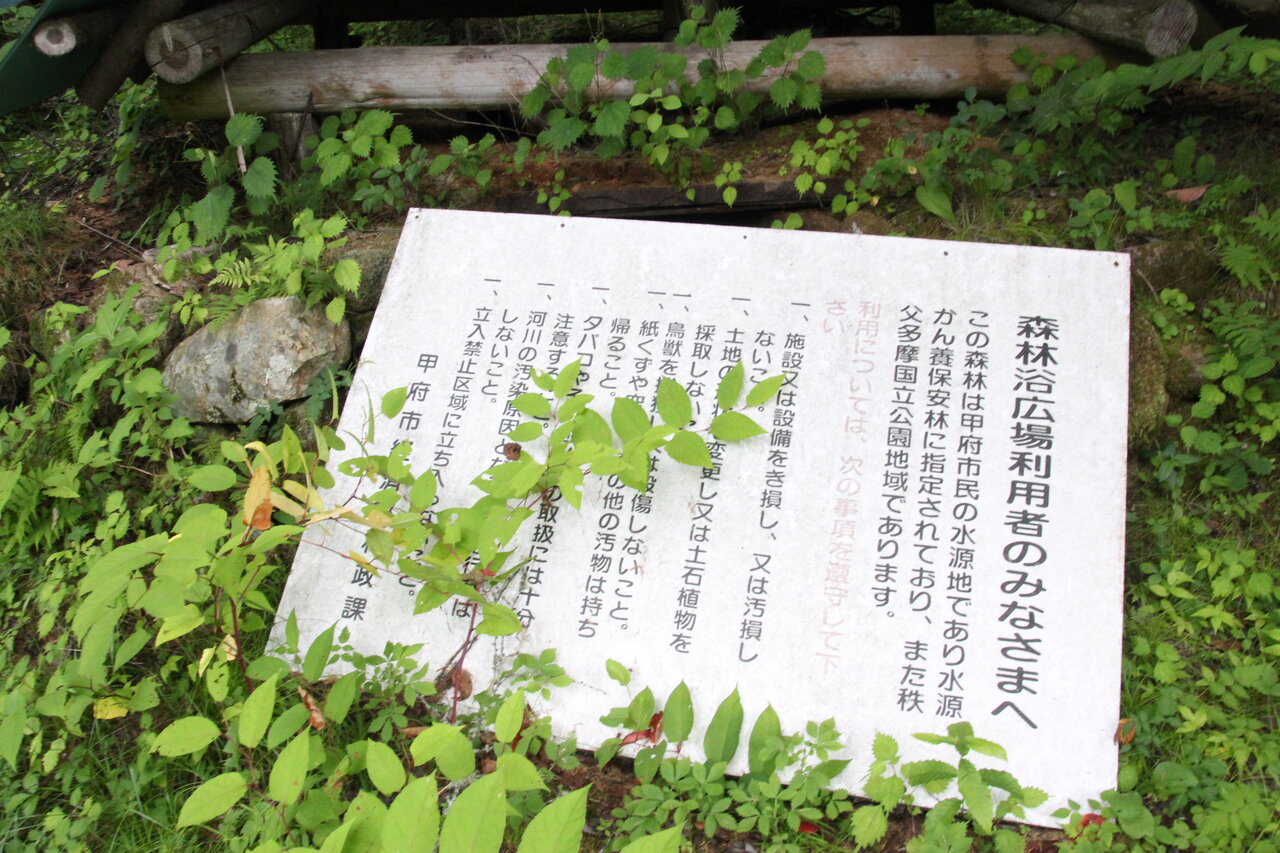 森林浴広場利用者のみなさまへ
この森林は甲府市民の水源地であり水源
かん養保安林に指定されており、また秩
父多摩国立公園地域であります。
利用については、次の事項を遵守して下
さい
一、施設又は設備をき損し、又は汚損し
ないこと。
一、土地の 変更し又は土石植物を
採取しない
一、鳥獣を 殺傷しないこと。
一、紙くずや空 の他の汚物は持ち
帰ること。
一、タバコや の取扱には十分
注意する
一、河川の汚染原因とな は
しないこと。
一、立入禁止区域に立ち入らないこと。
甲府市 政課